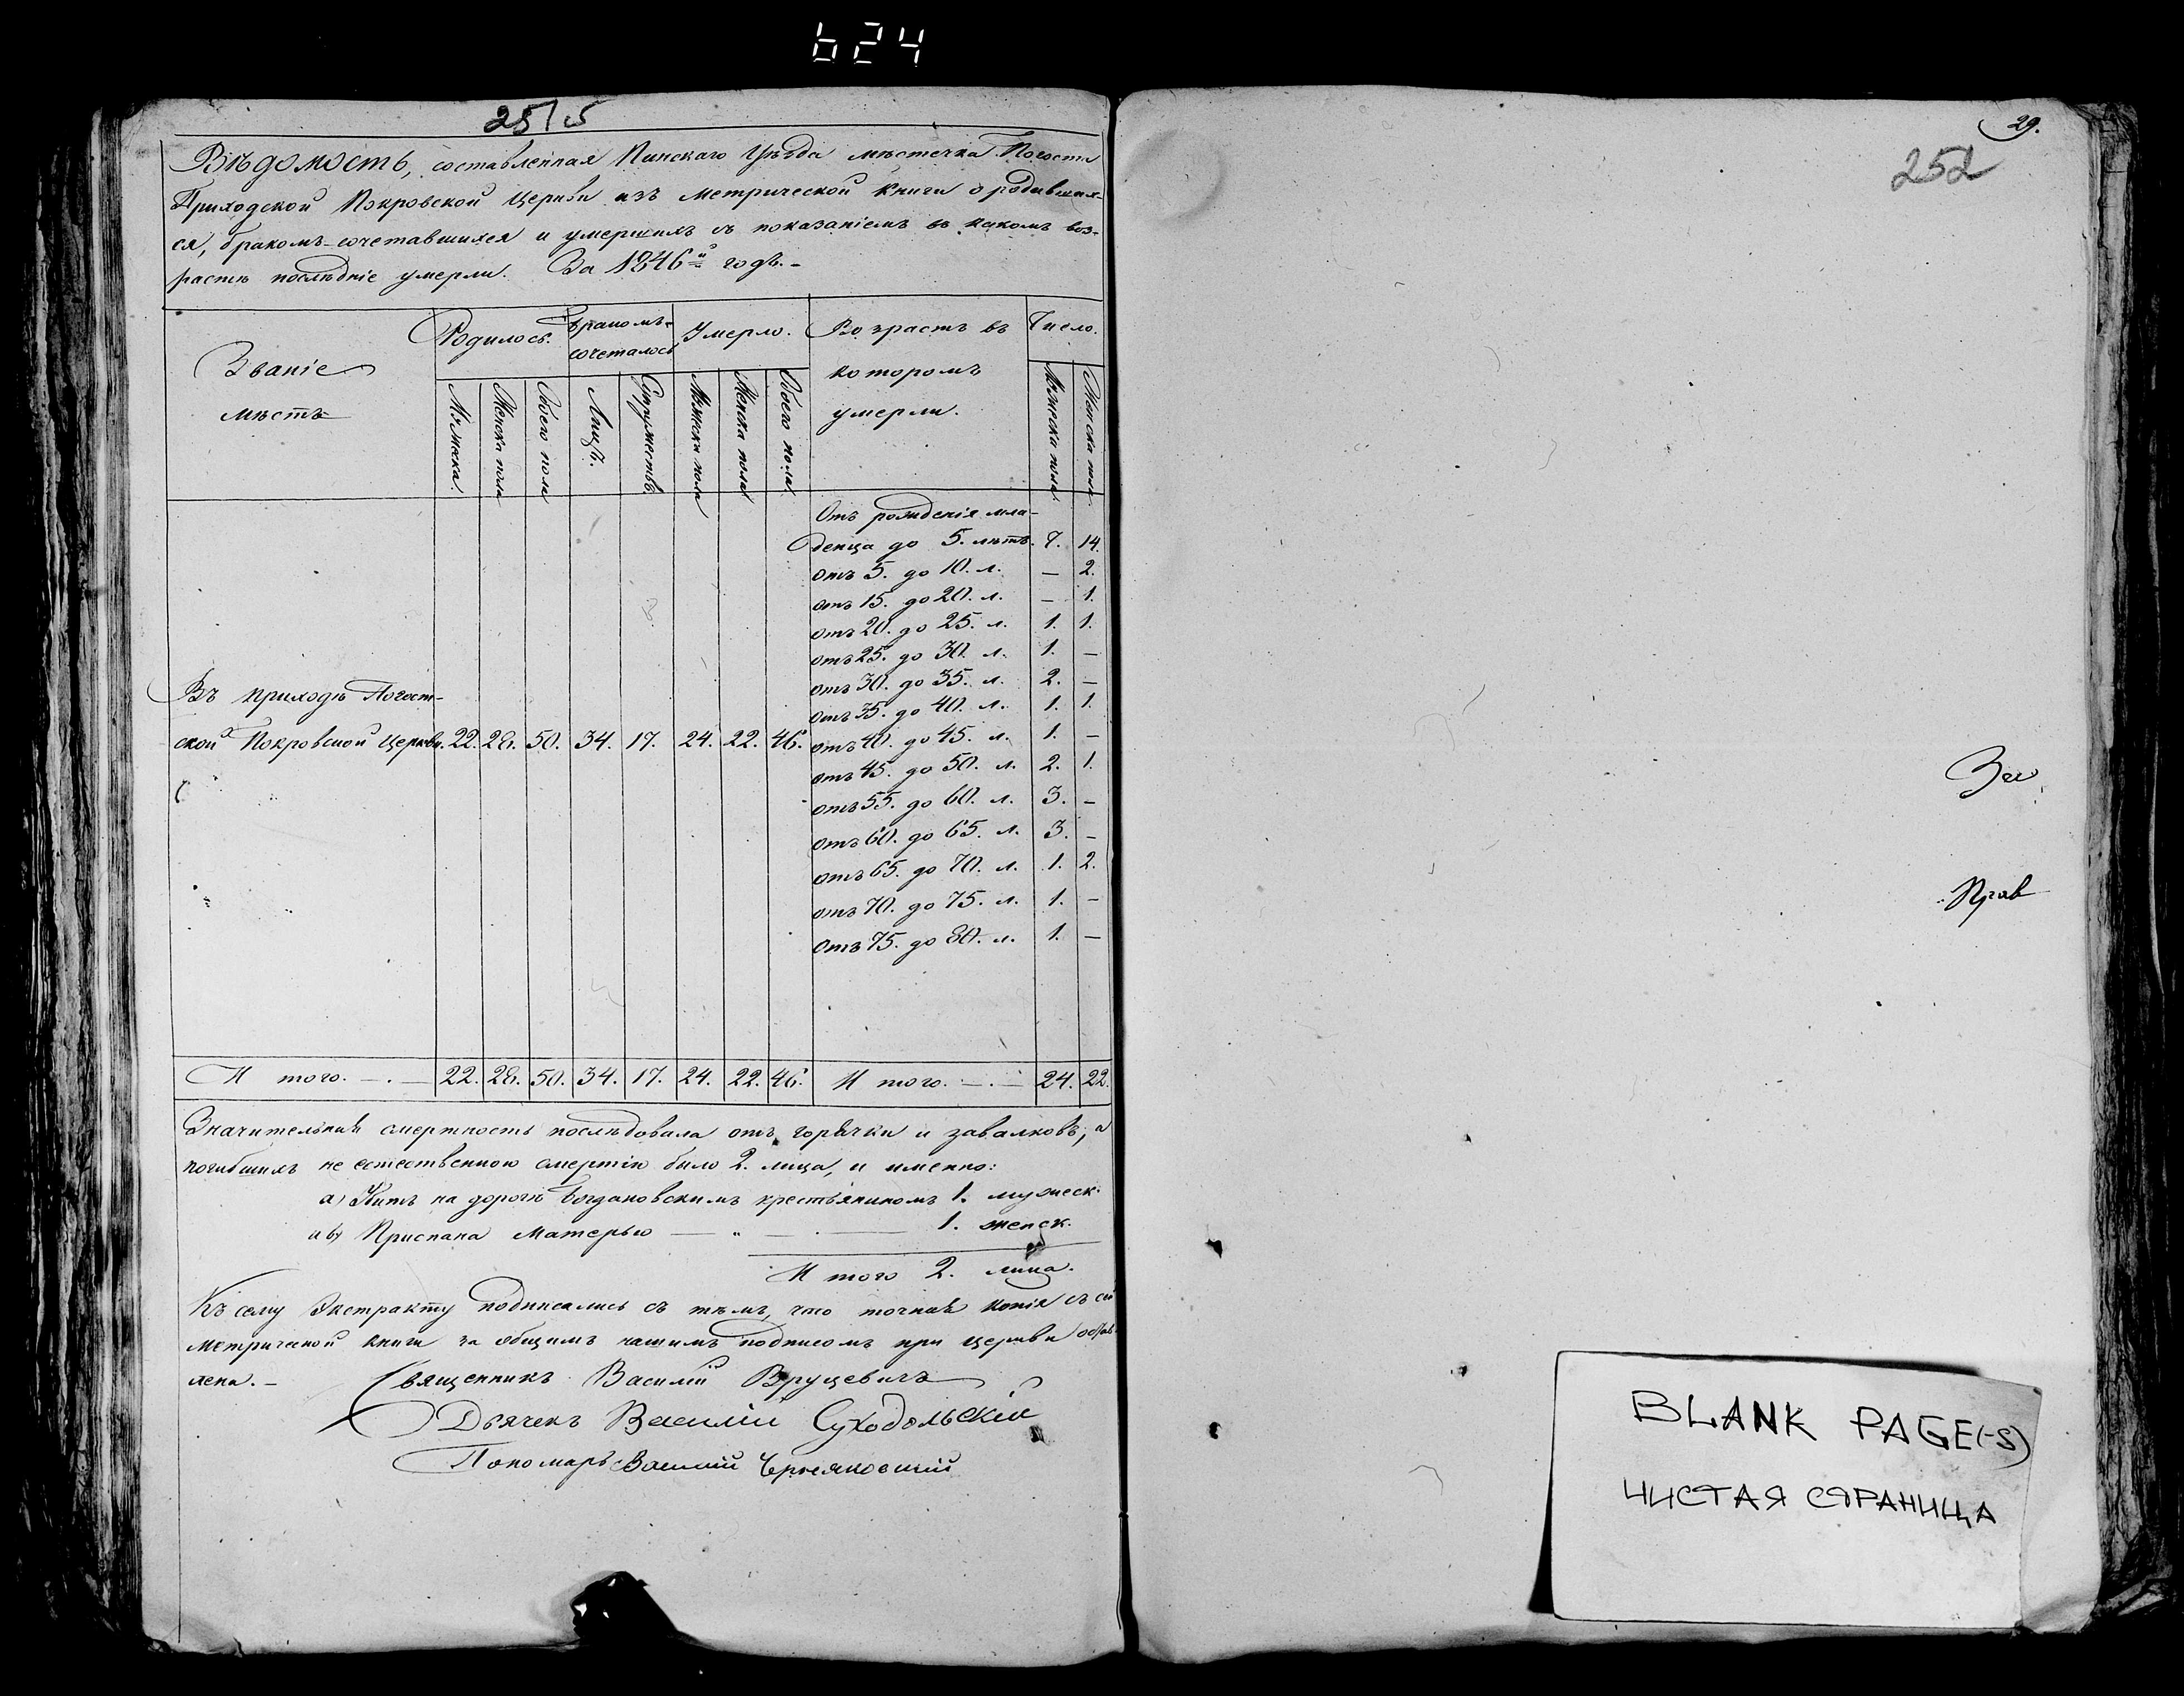 624
251 5
Вѣдомость, составленная Пинскаго Уѣзда мѣстечка Погоста
Приходской Покровской Церкви изъ метрической книги о родивших-
ся, бракомъ-сочетавшихся и умершихъ съ показаніемъ въ какомъ воз-
растѣ послѣдніе умерли. За 1846й годъ.-
Званіе мѣстъ
Родилось.
Бракомъ-сочеталось
Умерло.
Возрастъ въ которомъ умерли.
Число.
Мужска. Женска пола Обоего пола Лицъ. Супружествъ Мужска пола Женска пола Обоего пола Мужеска пола Женска пола
Отъ рожденія мла-
денца до 5. лѣтъ. 7. 14.
отъ 5. до 10. л. — 2.
отъ 15. до 20. л. — 1.
отъ 20. до 25. л. 1. 1.
отъ 25. до 30. л. 1. —
отъ 30. до 35. л. 2. —
отъ 35. до 40. л. 1. 1.
Въ приходѣ Погост-
ской Покровской Церкви. 22. 28. 50. 34. 17. 24. 22. 46. отъ 40. до 45. л. 1. —
отъ 45. до 50. л. 2. 1.
отъ 55. до 60. л. 3. —
отъ 60. до 65. л. 3. —
отъ 65. до 70. л. 1. 2.
отъ 70. до 75. л. 1. —
отъ 75. до 80. л. 1. —
И того. —.— 22. 28. 50. 34. 17. 24. 22. 46. И того. —.— 24. 22.
Значительная смертность послѣдовала отъ горячки и завалковъ, а
погибшихъ не естественною смертію было 2. лица, и именно:
а) Убитъ на дорогѣ Богдановскимъ крестьяниномъ 1. мужеск.
и б) Приспана Матерью — „ — . — 1. женск.
И того 2. лица.
Къ сему Экстракту подписались съ тѣмъ, что точная копія съ сей
метрической книги за общимъ нашимъ подписомъ при церкви остав-
лена.-
Священникъ Василій Вруцевичъ
Дьячекъ Василій Суходольскій
Пономарь Василій Черняковскій
29.
252
Зая
Прав
BLANK PAGE(-S)
ЧИСТАЯ СТРАНИЦА